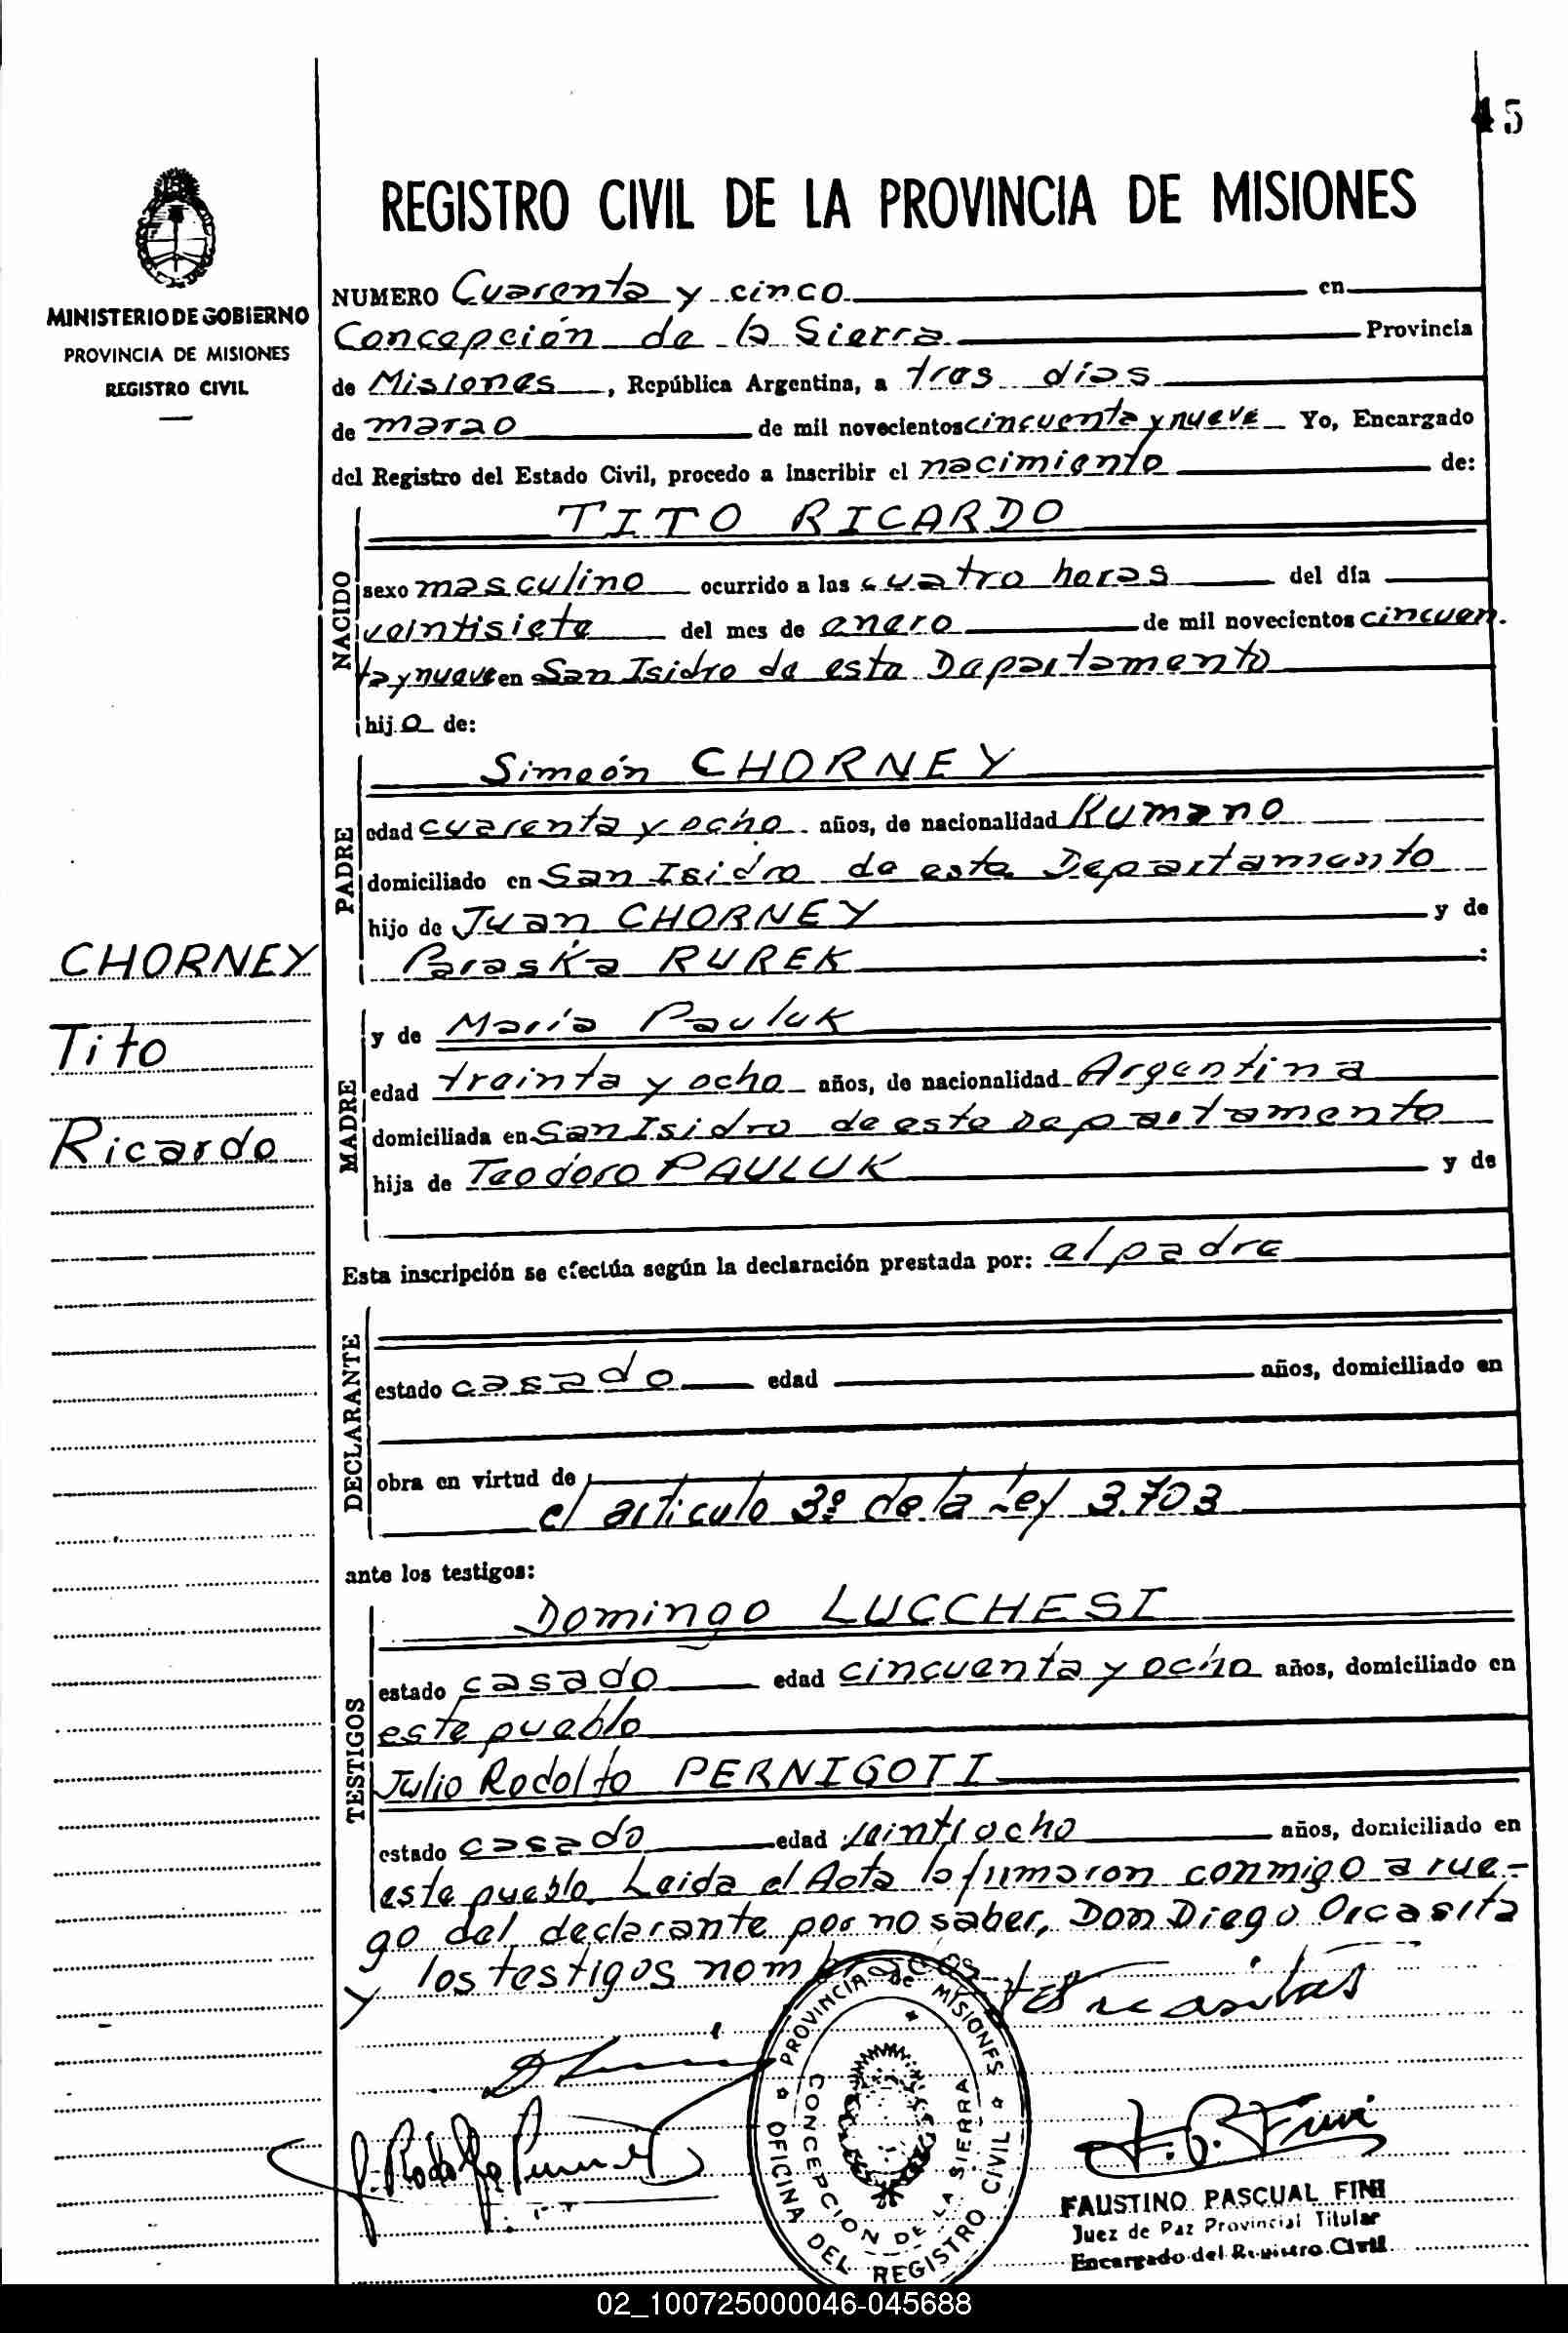 45
REGISTRO CIVIL DE LA PROVINCIA DE MISIONES
MINISTERIO DE GOBIERNO
PROVINCIA DE MISIONES
REGISTRO CIVIL
NUMERO Cuarenta y cinco en
Concepción de la Sierra Provincia
de Misiones, República Argentina, a tres días
de marzo de mil novecientos cincuenta y nueve Yo, Encargado
del Registro del Estado Civil, procedo a inscribir el nacimiento de:
NACIDO
TITO RICARDO
sexo masculino ocurrido a las cuatro horas del día
veintisiete del mes de enero de mil novecientos cincuen
ta y nueve en San Isidro de este Departamento
hijo de:
PADRE
Simeón CHORNEY
edad cuarenta y ocho años, de nacionalidad Rumano
domiciliado en San Isidro de este Departamento
hijo de Juan CHORNEY y de
Paraska RUREK :
CHORNEY
Tito
Ricardo
MADRE
y de María Pauluk
edad treinta y ocho años, de nacionalidad Argentina
domiciliada en San Isidro de este Departamento
hija de Teodoro PAULUK y de
Esta inscripción se efectúa según la declaración prestada por: el padre
DECLARANTE
estado casado edad años, domiciliado en
obra en virtud de
el articulo 3º de la Ley 3.703
ante los testigos:
TESTIGOS
Domingo LUCCHESI
estado casado edad cincuenta y ocho años, domiciliado en
este pueblo
Julio Rodolfo PERNIGOTI
estado casado edad veintiocho años, domiciliado en
este pueblo. Leida el Acta la firmaron conmigo a rue-
go del declarante por no saber, Don Diego Orcasita
y los testigos nombrados
PROVINCIA de MISIONES
CONCEPCION DE LA SIERRA
OFICINA DEL REGISTRO CIVIL
FAUSTINO PASCUAL FINI
Juez de Paz Provincial Titular
Encargado del Registro Civil
02_100725000046-045688